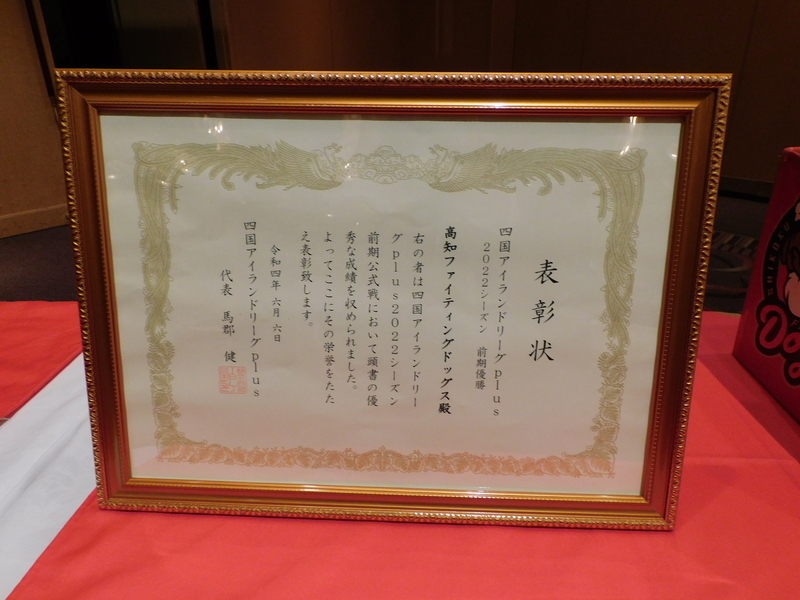 表彰状
四国アイランドリーグplus
2022シーズン 前期優勝
高知ファイティングドッグス殿
右の者は四国アイランドリー
グplus2022シーズン
前期公式戦において頭書の優
秀な成績を収められました。
よってここにその栄誉をたた
え表彰致します。
令和四年六月六日
四国アイランドリーグplus
代表 馬郡 健
SHIKOKU